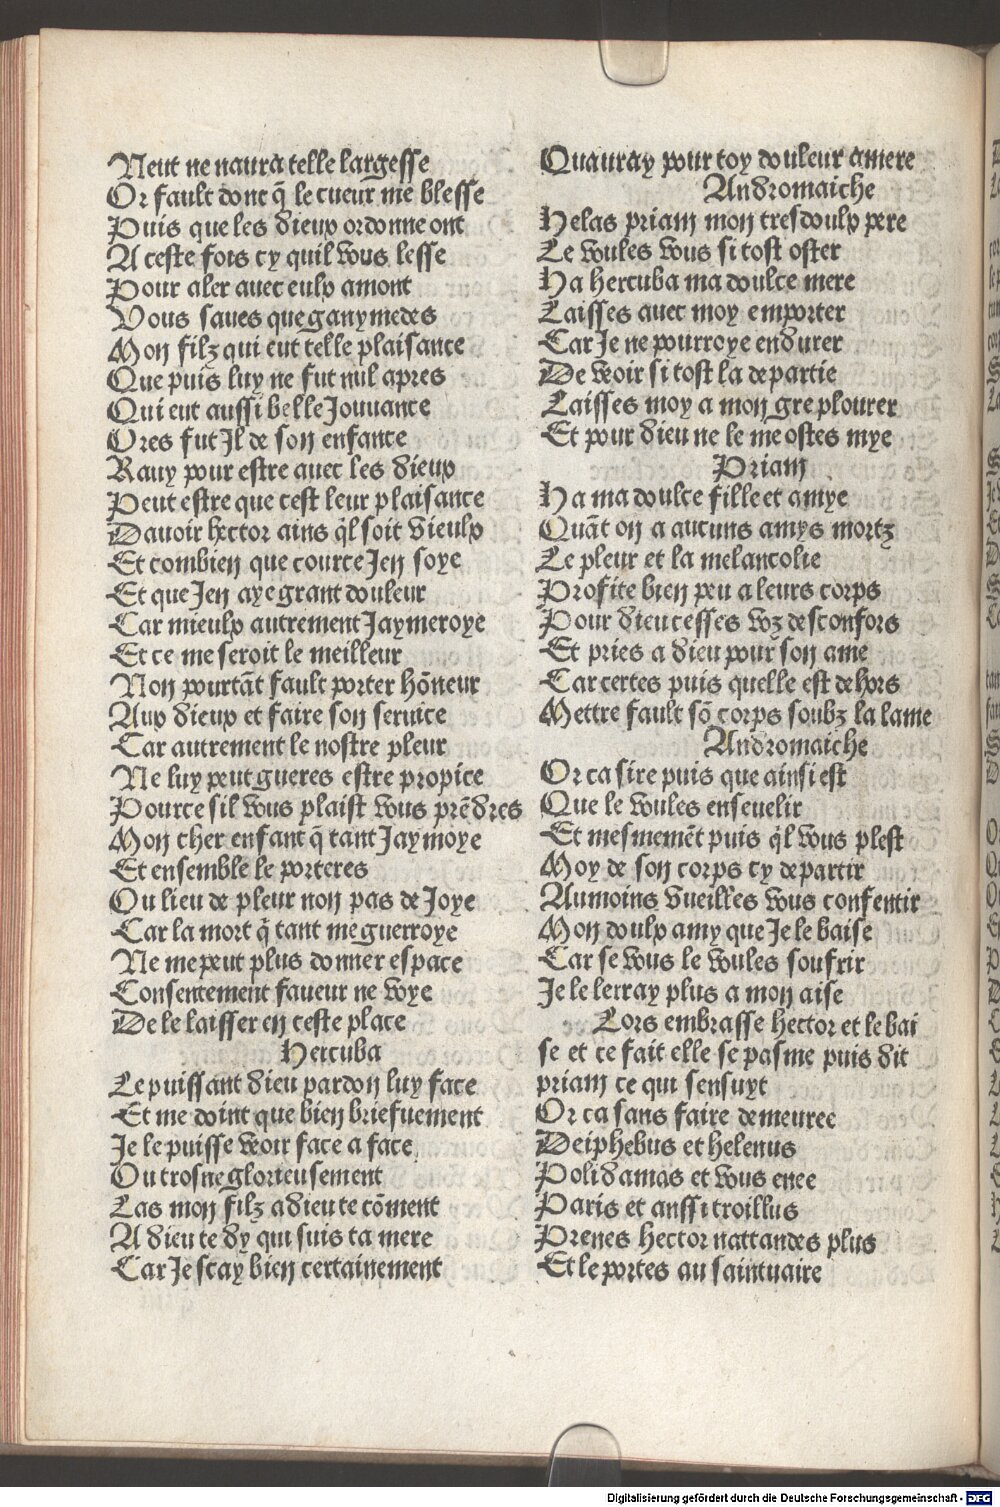 Neut ne naura telle largesse
Or fault donc q̄ le cueur me blesse
Puis que les dieux ordonne ont
A ceste fois cy quil vous lesse
Pour aler auec eulx amont
Vous saues que ganymedes
Mon filz qui eut telle plaisance
Que puis luy ne fut nul apres
Qui eut aussi belle Jouuance
Ores fut Jl de son enfance
Rauy pour estre auec les dieux
Peut estre que cest leur plaisance
Dauoir hector ains q̄l soit vieulx
Et combien queource Jen soye
Et que Jen aye grant douleur
Car mieulx autrement Jaymeroye
Et ce me seroit le meilleur
Non pourtāt fault porter hōneur
Aux dieux et faire son seruice
Car autrement le nostre pleur
Ne luy peut gueres estre propice
Pource sil vous plaist vous prēdres
Mon cher enfant q̄ tant Jaymoye
Et ensemble le porteres
Ou lieu de pleur non pas de Joye
Car la mort q̄ tant me guerroye
Ne me peut plus donner espace
Consentement faueur ne voye
De le laisser en ceste place
Hercuba
Le puissant dieu pardon luy face
Et me doint que bien briefuement
Je le puisse veoir face a face
Ou trosne glorieusement
Las mon filz a dieu te cōment
A dieu te dy qui suis ta mere
Car Je scay bien certainement
Quauray pour toy douleur amere
Andromaiche
Helas priam mon tresdoulx pere
Le voules vous si tost oster
Ha hercuba ma doulce mere
Laisses auec moy emporter
Car Je ne pourroye endurer
De veoir si tost la departie
Laisses moy a mon gre plourer
Et pour dieu ne le me ostes mye
Priam
Ha ma doulce fille et amye
Quāt on a aucuns amys mortz
Le pleur et la melancolie
Profite bien peu a leurs corps
Pour dieu cesses voz desconfors
Et pries a dieu pour son ame
Car certes puis quelle est dehors
Mettre fault sō corps soubz la lame
Andromaiche
Or ca sire puis que ainsi est
Que le voules enseuelir
Et mesmemēt puis q̄l vous plest
Moy de son corps cy departir
Aumoins vueilles vous consentir
Mon doulx amy que Je le baise
Car se vous le voules soufrir
Je le lerray plus a mon aise
Lors embrasse hector et le bai
se et ce fait elle se pasme puis dit
priam ce qui sensuyt
Or ca sans faire demeuree
Deiphebus et helenus
Polidamas et vous enee
Paris et aussi troillus
Prenes hector nattandes plus
Et le portes au saintuaire
Digitalisierung gefördert durch die Deutsche Forschungsgemeinschaft - DFG